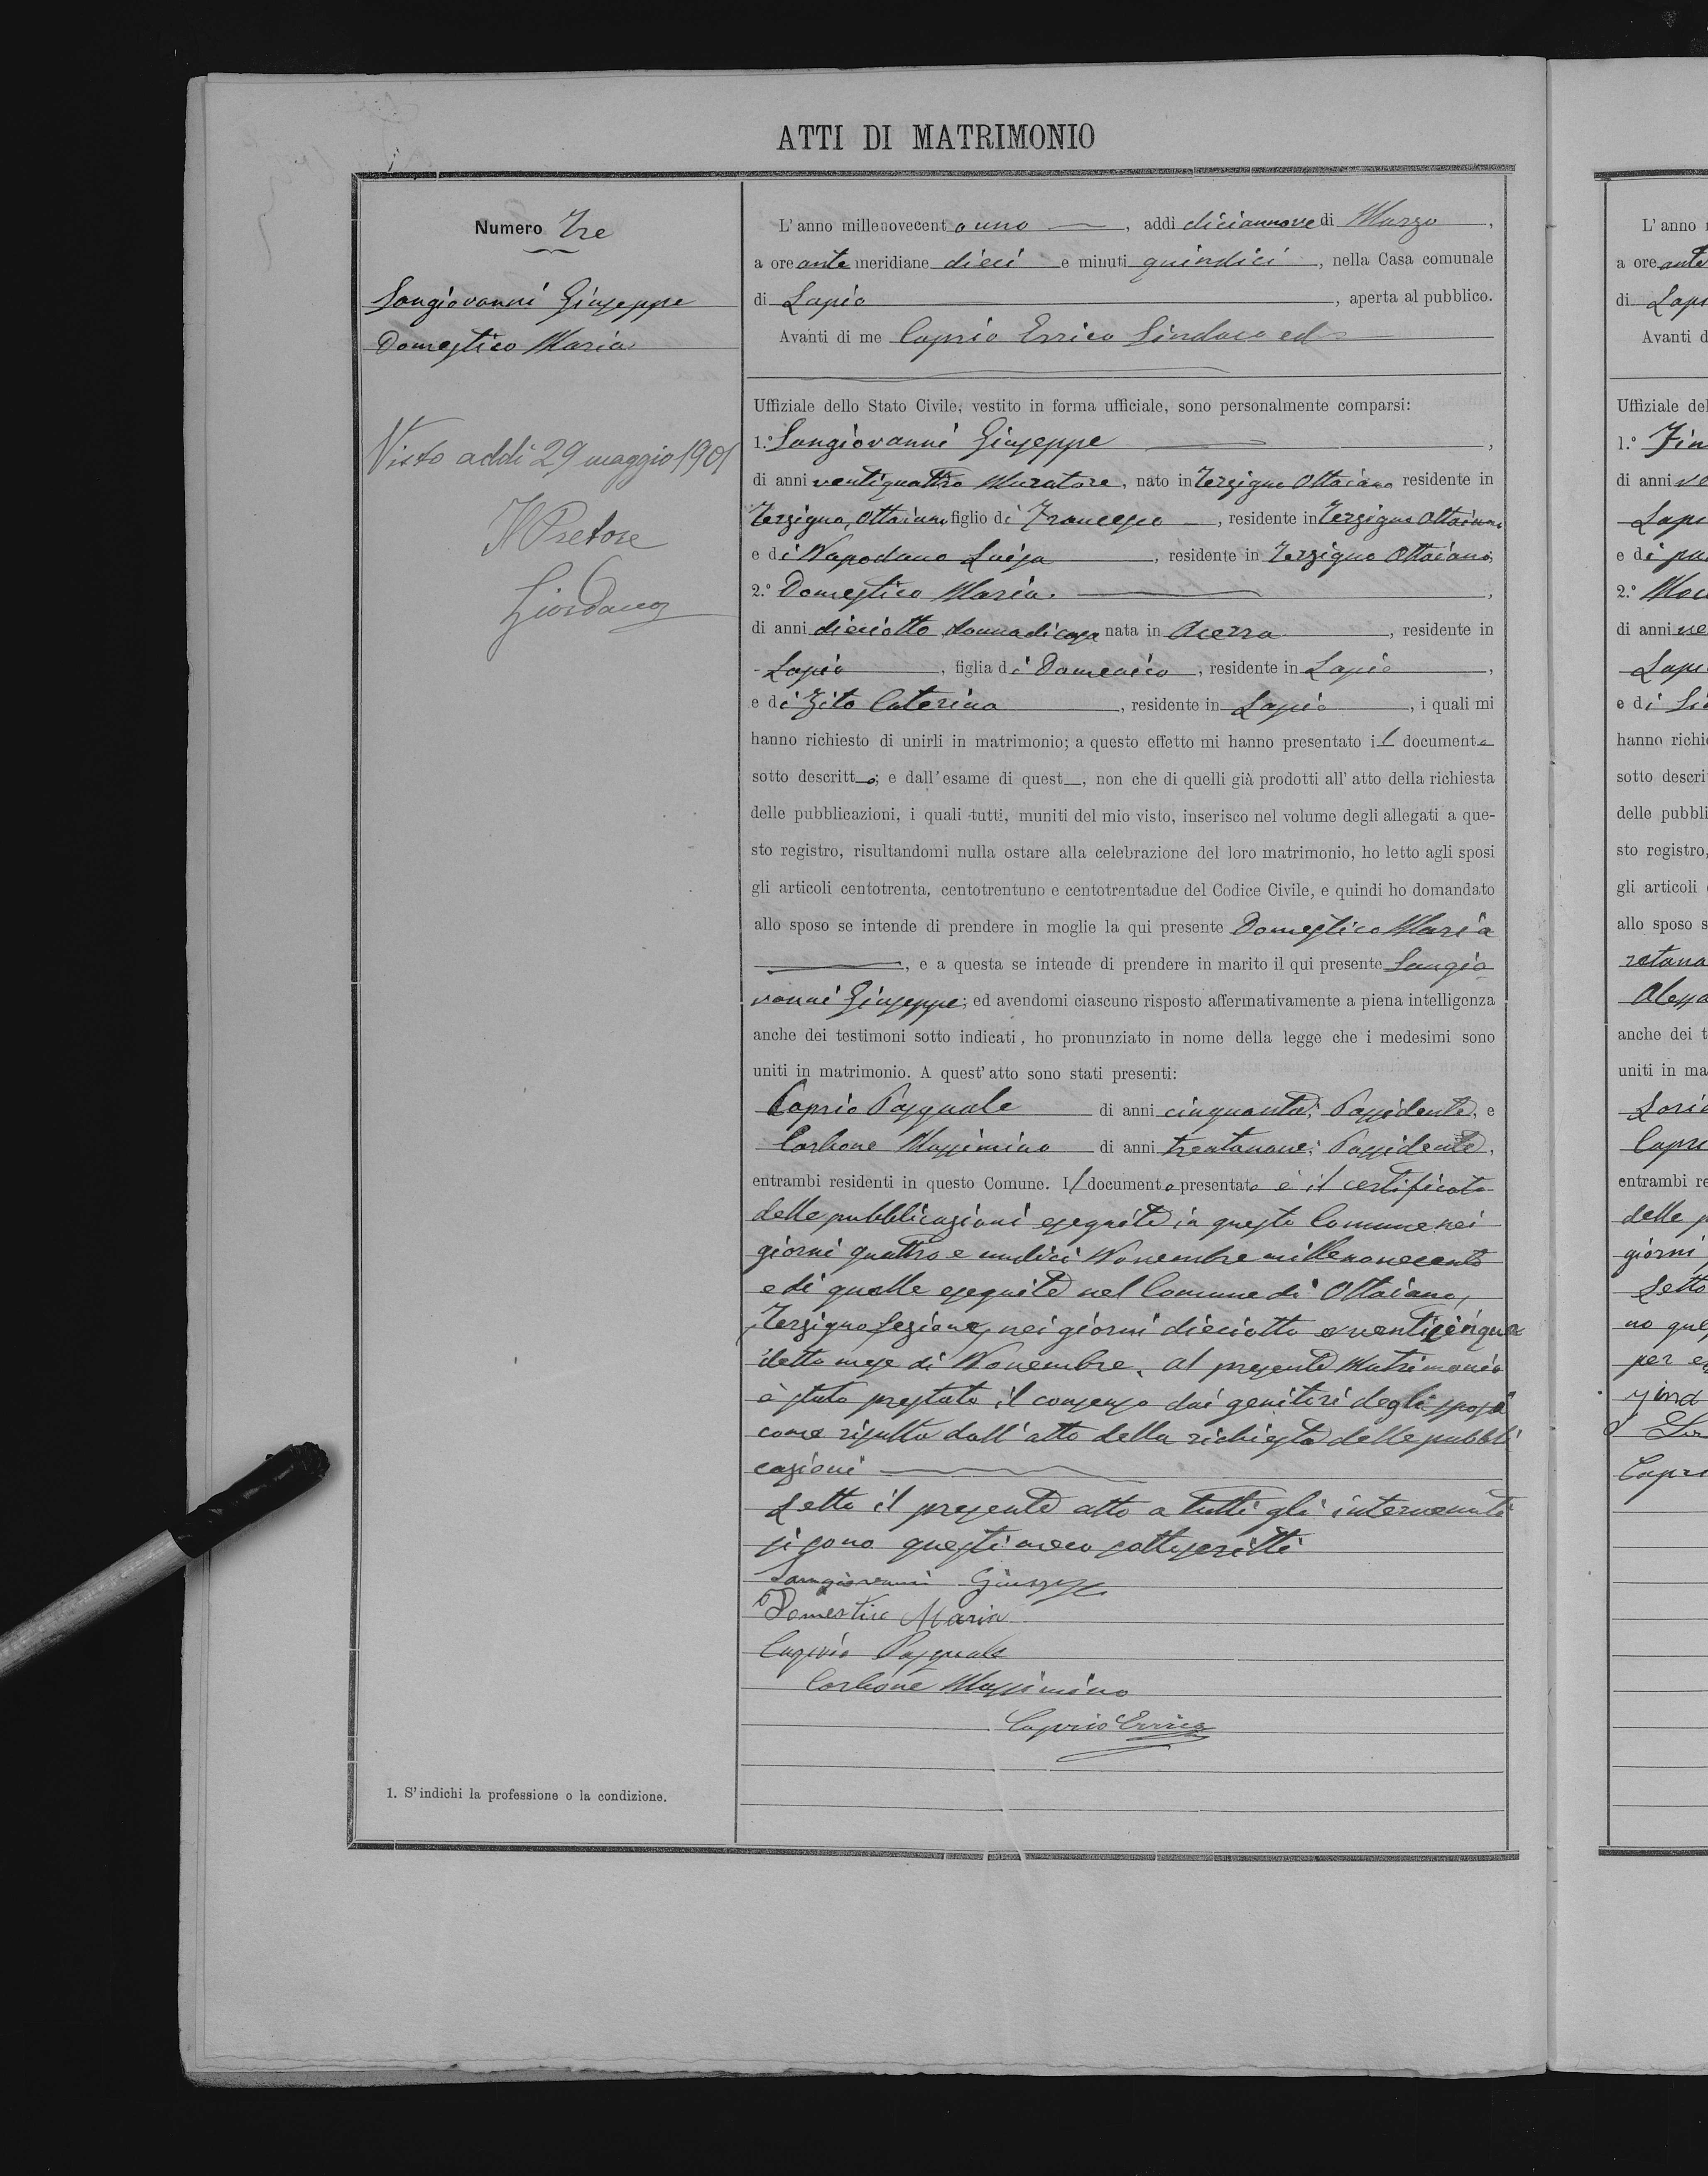 ATTI DI MATRIMONIO
Numero Tre
Sangiovanni Giuseppe
Domestico Maria
Visto addì 29 maggio 1901
Il Pretore
Giordano
1. S'indichi la professione o la condizione.
L'anno millenovecento uno, addì diciannove di Marzo,
a ore antemeridiane dieci e minuti quindici, nella Casa comunale
di Lapio, aperta al pubblico.
Avanti di me Caprio Errico Sindaco ed
Uffiziale dello Stato Civile, vestito in forma ufficiale, sono personalmente comparsi:
1.° Sangiovanni Giuseppe,
di anni ventiquattro Muratore, nato in Terzigno Ottaiano residente in
Terzigno, Ottaiano figlio di Francesco, residente in Terzigno Ottaiano
e di Napodano Luisa, residente in Terzigno Ottaiano,
2.° Domestico Maria,
di anni dieciotto donna di casa nata in Acerra, residente in
Lapio, figlia di Domenico, residente in Lapio,
e di Zito Caterina, residente in Lapio, i quali mi
hanno richiesto di unirli in matrimonio; a questo effetto mi hanno presentato il documento
sotto descritto; e dall'esame di quest, non che di quelli già prodotti all'atto della richiesta
delle pubblicazioni, i quali tutti, muniti del mio visto, inserisco nel volume degli allegati a que-
sto registro, risultandomi nulla ostare alla celebrazione del loro matrimonio, ho letto agli sposi
gli articoli centotrenta, centotrentuno e centotrentadue del Codice Civile, e quindi ho domandato
allo sposo se intende di prendere in moglie la qui presente Domestico Maria
, e a questa se intende di prendere in marito il qui presente Sangio
vanni Giuseppe; ed avendomi ciascuno risposto affermativamente a piena intelligenza
anche dei testimoni sotto indicati, ho pronunziato in nome della legge che i medesimi sono
uniti in matrimonio. A quest'atto sono stati presenti:
Caprio Pasquale di anni cinquanta, Possidente, e
Carbone Massimino di anni trentanove, Possidente,
entrambi residenti in questo Comune. Il documento presentato è il certificato
delle pubblicazioni eseguite in questo Comune nei
giorni quattro e undici Novembre millenovecento
e di quelle eseguite nel Comune di Ottaiano,
Terzigno sezione, nei giorni dieciotto e venticinque
detto mese di Novembre. Al presente Matrimonio
è stato prestato il consenso dai genitori degli sposi
come risulta dall'atto della richiesta delle pubbli
cazioni
Letto il presente atto a tutti gli intervenuti
si sono questi meco sottoscritti
Sangiovanni Giuseppe
Domestico Maria
Caprio Pasquale
Carbone Massimino
Caprio Errico
L'anno
a ore ante
di Lapi
Avanti d
Uffiziale del
1.°
di anni
Lapi
e di
2.°
di anni
Lapi
e di
hanno richie
sotto descri
delle pubbli
sto registro,
gli articoli
allo sposo s
retano
Alessa
anche dei t
uniti in ma
Capri
entrambi re
delle p
giorni
Letto
no que
per e
Capri